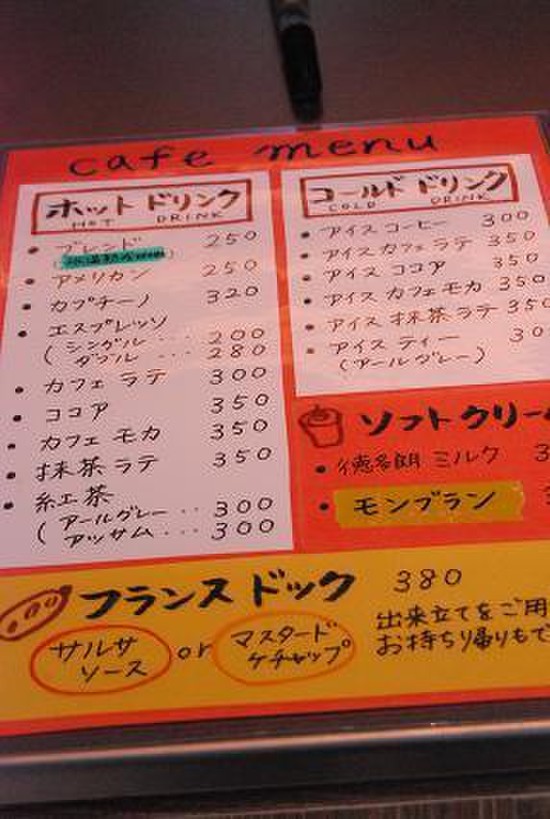 cafe menu
ホット ドリンク
HOT DRINK
・ブレンド 250
・アメリカン 250
・カプチーノ 320
・エスプレッソ
(シングル ··· 200
ダブル ··· 280
・カフェ ラテ 300
・ココア 350
・カフェ モカ 350
・抹茶 ラテ 350
・紅茶
(アールグレー ·· 300
アッサム ··· 300
コールド ドリンク
COLD DRINK
・アイス コーヒー 300
・アイス カフェ ラテ 350
・アイス ココア 350
・アイス カフェ モカ 350
・アイス 抹茶 ラテ 350
・アイス ティー 30
(アールグレー)
ソフトクリー
・徳多朗 ミルク 3
・モンブラン
フランス ドック 380
サルサ
ソース
or
マスタード
ケチャップ
出来立てをご用
お持ち帰りもで